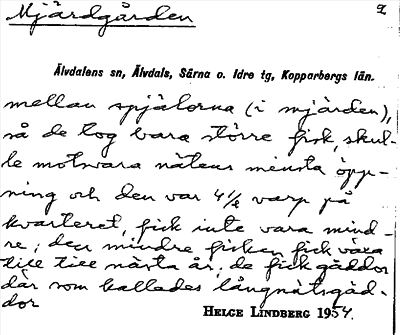 Mjärdgården
2
Älvdalens sn, Älvdals, Särna o. Idre tg, Kopparbergs län.
mellan spjälorna (i mjärden),
så de tog bara större fisk, skul-
le motsvara nätens minsta öpp-
ning och den var 4 1/2 varp på
kvarteret, fick inte vara mind-
re; den mindre fisken fick växa
till till nästa år; de fick gäddor
där som kallades långnätsgäd-
dor
HELGE LINDBERG 1954.